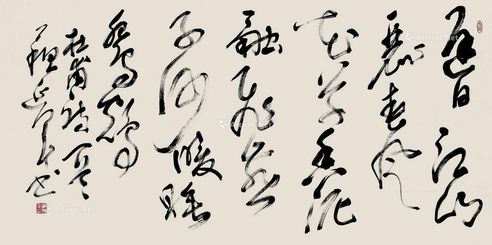 遲日江山
麗春風
花草香泥
融飛燕
子沙暖睡
鴛鴦
杜甫詩
书